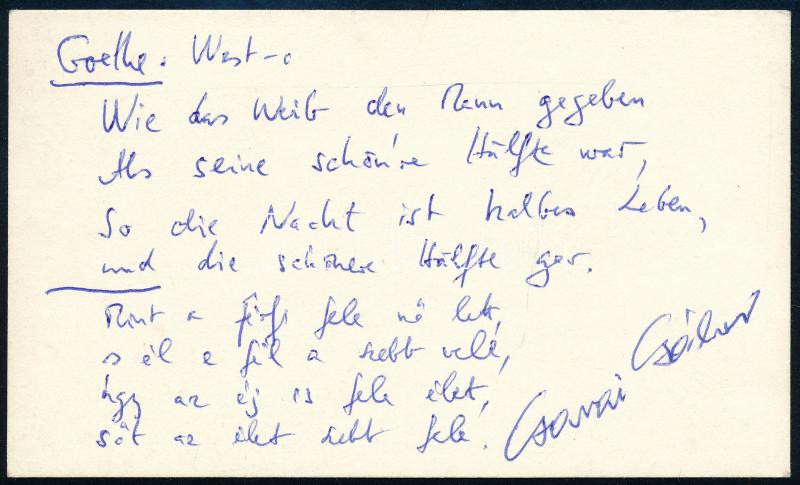 Goethe: West-ö
Wie das Weib dem Mann gegeben
Als seine schön're Hälfte war,
So die Nacht ist halbes Leben,
und die schönere Hälfte gar.
Mint a férfi fele nő lett,
s él e fél a szebb
úgy az éj is fele élet,
sőt az élet szebb fele.